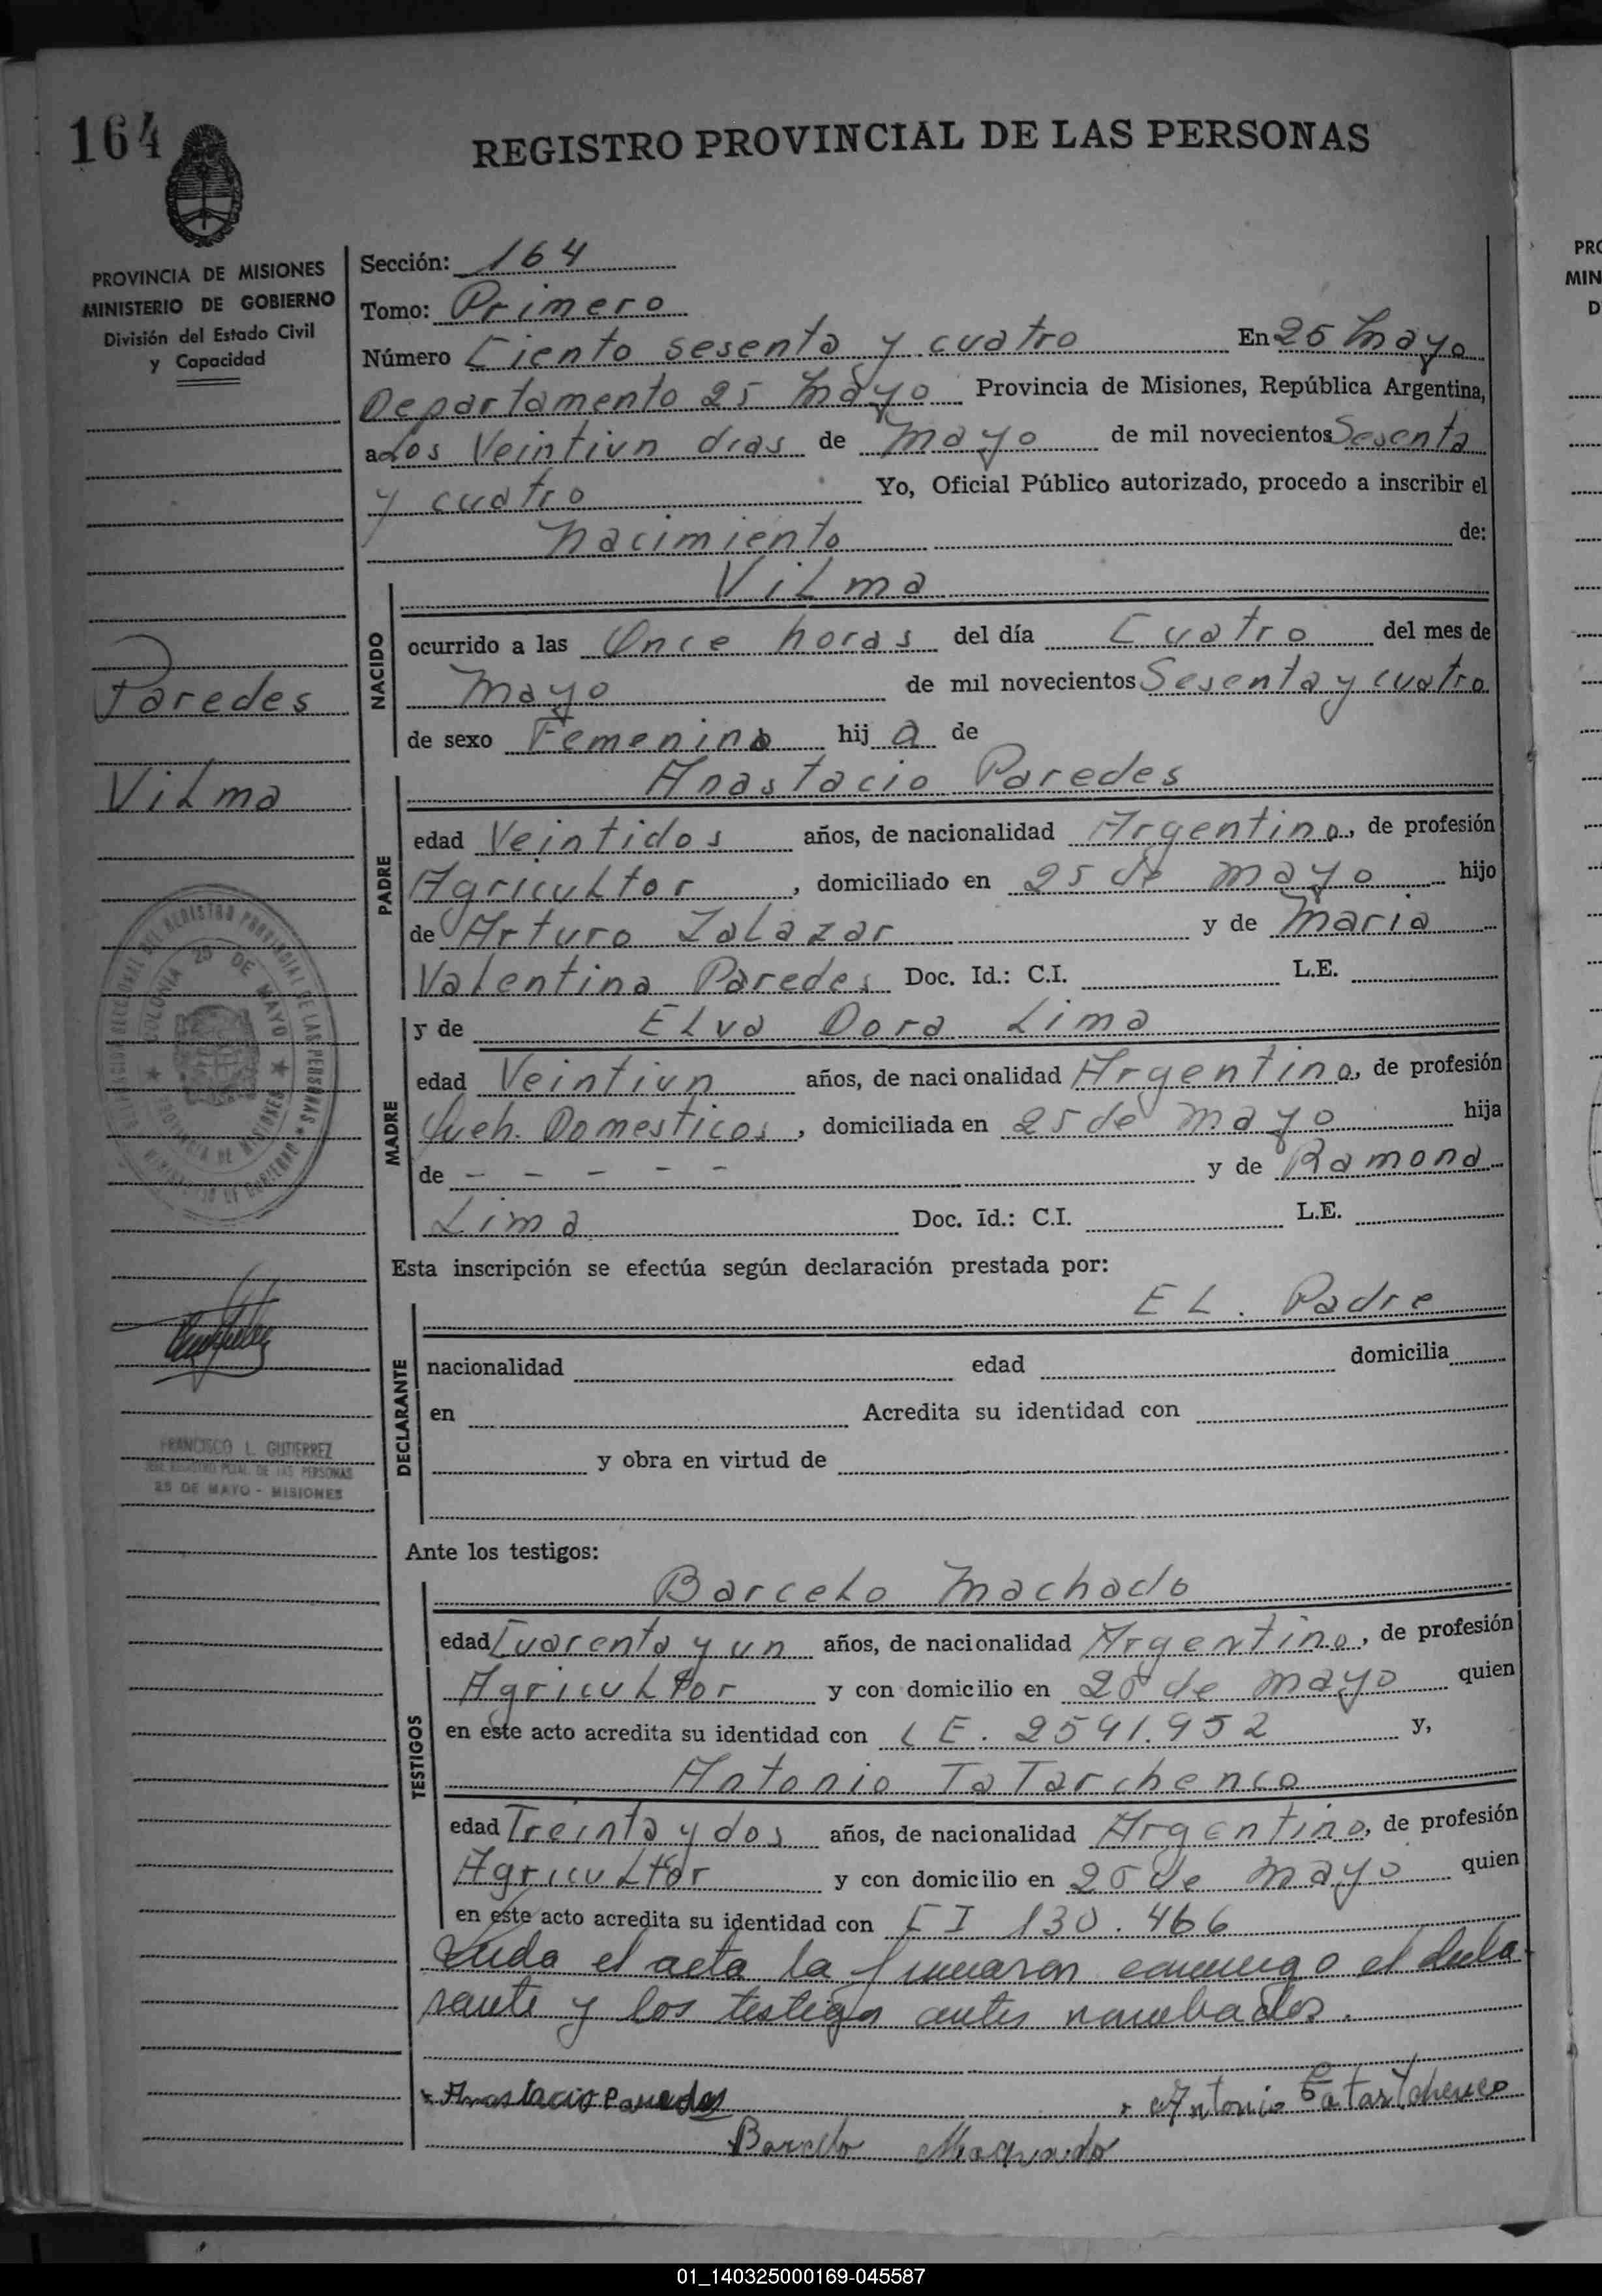 164
REGISTRO PROVINCIAL DE LAS PERSONAS
PROVINCIA DE MISIONES
MINISTERIO DE GOBIERNO
División del Estado Civil
y Capacidad
Paredes
Vilma
DEL REGISTRO PROVINCIAL DE LAS PERSONAS
COLONIA 25 DE MAYO
PROVINCIA DE MISIONES
MINISTERIO DE GOBIERNO
FRANCISCO L. GUTIERREZ
JEFE REGISTRO PCIAL. DE LAS PERSONAS
25 DE MAYO - MISIONES
Sección: 164
Tomo: Primero
Número Ciento sesenta y cuatro En 25 Mayo
Departamento 25 Mayo Provincia de Misiones, República Argentina,
a Los Veintiun dias de Mayo de mil novecientos Sesenta
y cuatro Yo, Oficial Público autorizado, procedo a inscribir el
Nacimiento de:
NACIDO
Vilma
ocurrido a las Once horas del día Cuatro del mes de
Mayo de mil novecientos Sesenta y cuatro
de sexo Femenino hij a de
PADRE
Anastacio Paredes
edad Veintidos años, de nacionalidad Argentino, de profesión
Agricultor, domiciliado en 25 de Mayo hijo
de Arturo Zalazar y de Maria
Valentina Paredes Doc. Id.: C.I. L.E.
MADRE
y de Elva Dora Lima
edad Veintiun años, de nacionalidad Argentina, de profesión
Queh. Domesticos, domiciliada en 25 de Mayo hija
de - - - - - y de Ramona
Lima Doc. Id.: C.I. L.E.
Esta inscripción se efectúa según declaración prestada por:
DECLARANTE
EL. Padre
nacionalidad edad domicilia
en Acredita su identidad con
y obra en virtud de
Ante los testigos:
TESTIGOS
Barcelo Machado
edad Cuarenta y un años, de nacionalidad Argentino, de profesión
Agricultor y con domicilio en 25 de Mayo quien
en este acto acredita su identidad con L E. 2591.952 y,
Antonio Tatarchenco
edad Treinta y dos años, de nacionalidad Argentino, de profesión
Agricultor y con domicilio en 25 de Mayo quien
en este acto acredita su identidad con C I 130.466
Leida el acta la firmaron conmigo el decla-
rante y los testigos antes nombados.
Anastacio Paredes
Antonio Tatartchenco
Barcelo Maquado
01_140325000169-045587